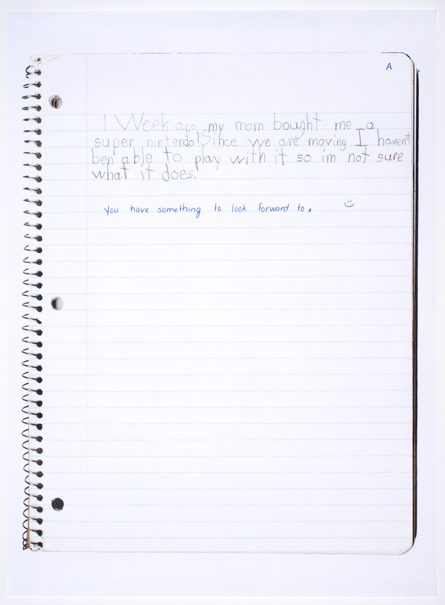 A
1 Week ago my mom bought me a
super nintendo! Since we are moving I havent
ben able to play with it so im not sure
what it does.
You have something to look forward to.